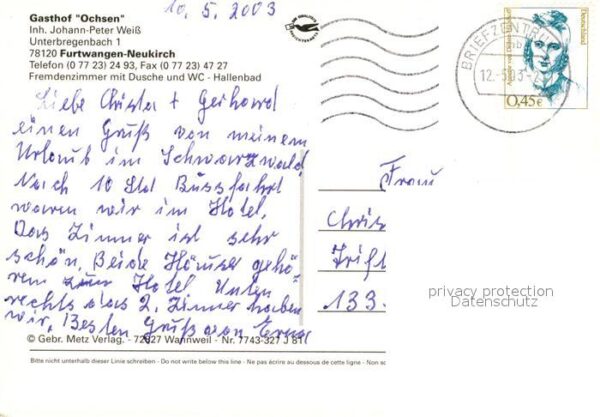 10.5.2003
Gasthof "Ochsen"
Inh. Johann-Peter Weiß
Unterbregenbach 1
78120 Furtwangen-Neukirch
Telefon (0 77 23) 24 93, Fax (0 77 23) 47 27
Fremdenzimmer mit Dusche und WC - Hallenbad
Liebe Christa + Gerhard
einen Gruß von meinem
Urlaub im Schwarzwald
Nach 10 Std Bussfahrt
waren wir im Hotel.
Das Zimmer ist sehr
schön. Beide Häuser gehö-
rem zum Hotel Unten
rechts das 2. Zimmer haben
wir. Besten Gruß von
© Gebr. Metz Verlag. - 72827 Wannweil - Nr. 7743-327 J 81
Bitte nicht unterhalb dieser Linie schreiben - Do not write below this line - Ne pas écrire au dessous de cette ligne - Non sc
BRIEFZENTRUM
12.-5.03
Deutschland
0,45€
Frau
Chris
Trift
133
privacy protection
Datenschutz